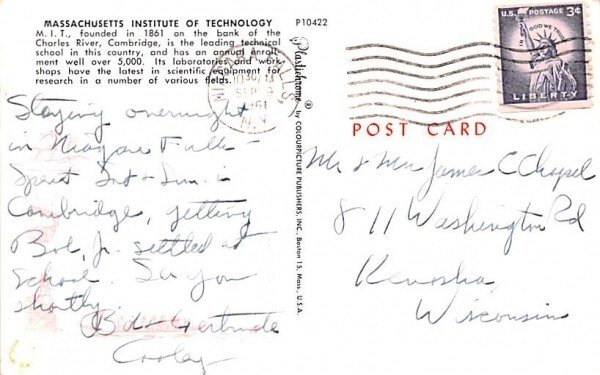 MASSACHUSETTS INSTITUTE OF TECHNOLOGY
M. I. T., founded in 1861 on the bank of the
Charles River, Cambridge, is the leading technical
school in this country, and has an annual enroll-
ment well over 5,000. Its laboratories and work-
shops have the latest in scientific equipment for
research in a number of various fields.
P10422
Staying overnight
in Niagara Falls -
Spent Sat & Sun. in
Cambridge, getting
Bob, Jr. settled at
School. See you
shortly.
Bob & Gertrude
Cooley
Plastichrome ® by COLOURPICTURE PUBLISHERS, INC., Boston 15, Mass., U.S.A.
NIAGARA FALLS
SEP
1961
N.Y.
U.S. POSTAGE 3¢
IN GOD WE TRUST
LIBERTY
POST CARD
Mr & Mrs James C Chapel
811 Washington Rd
Kenosha
Wisconsin